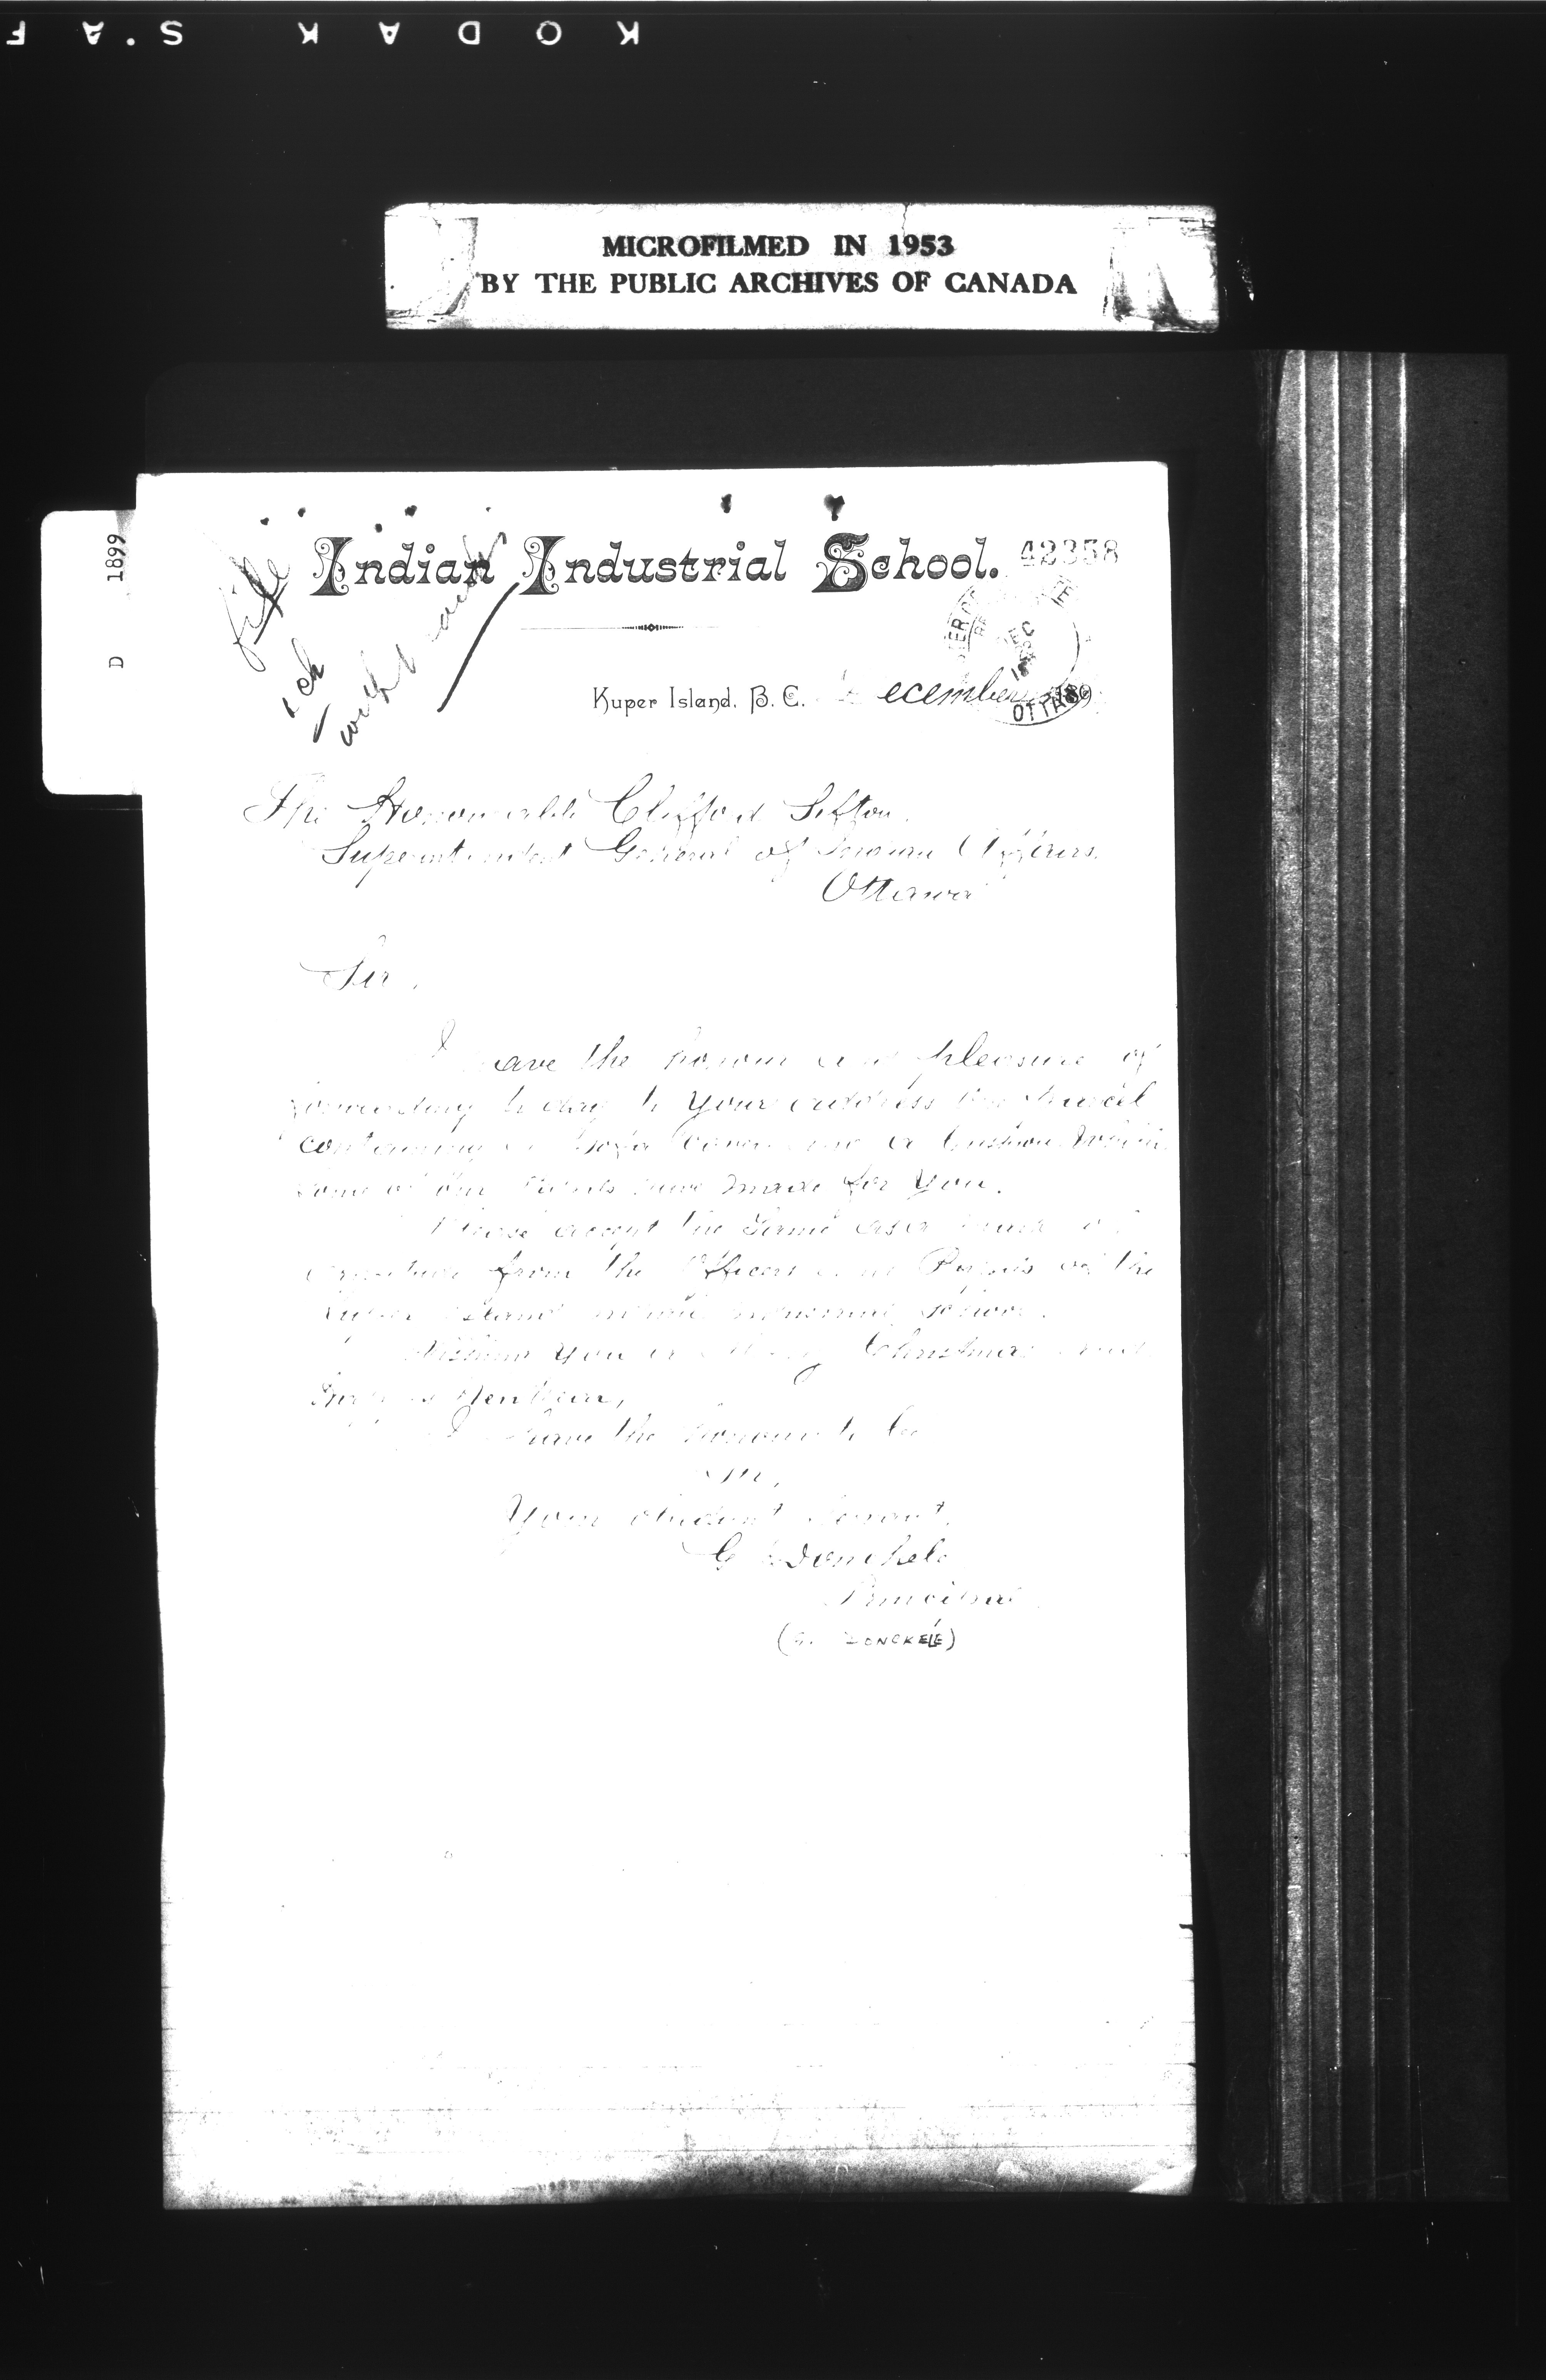 KODAK S'AF
MICROFILMED IN 1953
BY THE PUBLIC ARCHIVES OF CANADA
D 1899
file
Indian Industrial School. 42358
DEC
OTTAWA
Kuper Island, B. C. December
The Honourable Clifford Sifton.
Superintendent General of Indian Affairs.
Ottawa
Sir,
I have the honour and pleasure of
forwarding to day to your address the Parcel
containing a Sofa Cover and a Cushion which
some of our Pupils have made for you.
Please accept the same as a mark of
gratitude from the Officers and Pupils of the
Kuper Island Indian Industrial School.
Wishing you a Merry Christmas and
Happy New Year,
I have the honour to be
Sir,
Your obedient Servant.
G Donckele
Principal
(G. DONCKELE)